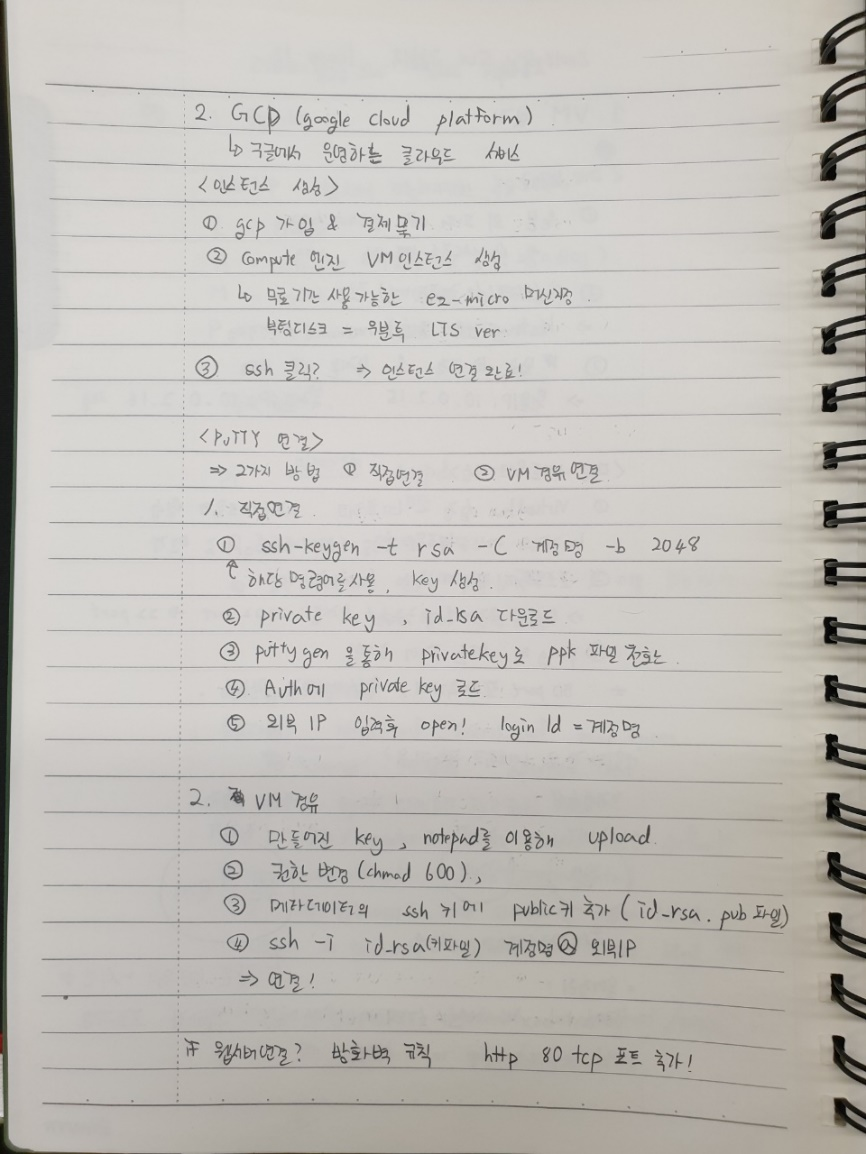 2. GCP (google cloud platform)
↳ 구글에서 운영하는 클라우드 서비스
<인스턴스 생성>
① gcp 가입 & 결제 묶기
② Compute 엔진 VM인스턴스 생성
↳ 무료기간 사용가능한 e2-micro 머신지정.
부팅디스크 = 우분투 LTS ver
③ ssh 클릭? ⇒ 인스턴스 연결 완료!
<PuTTY 연결>
⇒ 2가지 방법 ① 직접연결 ② VM경유 연결
1. 직접연결
① ssh-keygen -t rsa -C 계정명 -b 2048
↑ 해당 명령어를 사용, key 생성.
② private key, id_rsa 다운로드
③ puttygen 을 통해 privatekey로 ppk 파일 전환
④ Auth에 private key 로드
⑤ 외부 IP 입력후 open! login Id = 계정명
2. VM 경유
① 만들어진 key, notepad를 이용해 upload
② 권한 변경 (chmod 600),
③ 메타데이터의 ssh 키에 public키 추가 (id_rsa.pub 파일)
④ ssh -i id_rsa(키파일) 계정명@외부IP
⇒ 연결!
# 웹서버연결? 방화벽 규칙 http 80 tcp 포트 추가!